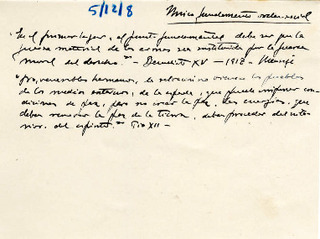 5/12/8
Unico fundamento
"En el primer lugar, el punto fundamental debe ser que la
fuerza material de las armas sea sustituida por la fuerza
moral del derecho." — Benedicto XV — 1917 —
venerables hermanos, los pueblos
de los medios externos, de la espada, que puede imponer con-
diciones de paz, pero no crear la paz. Las energías, que
deben renovar la faz de la tierra, deben proceder del inte-
rior, del espíritu." Pio XII —